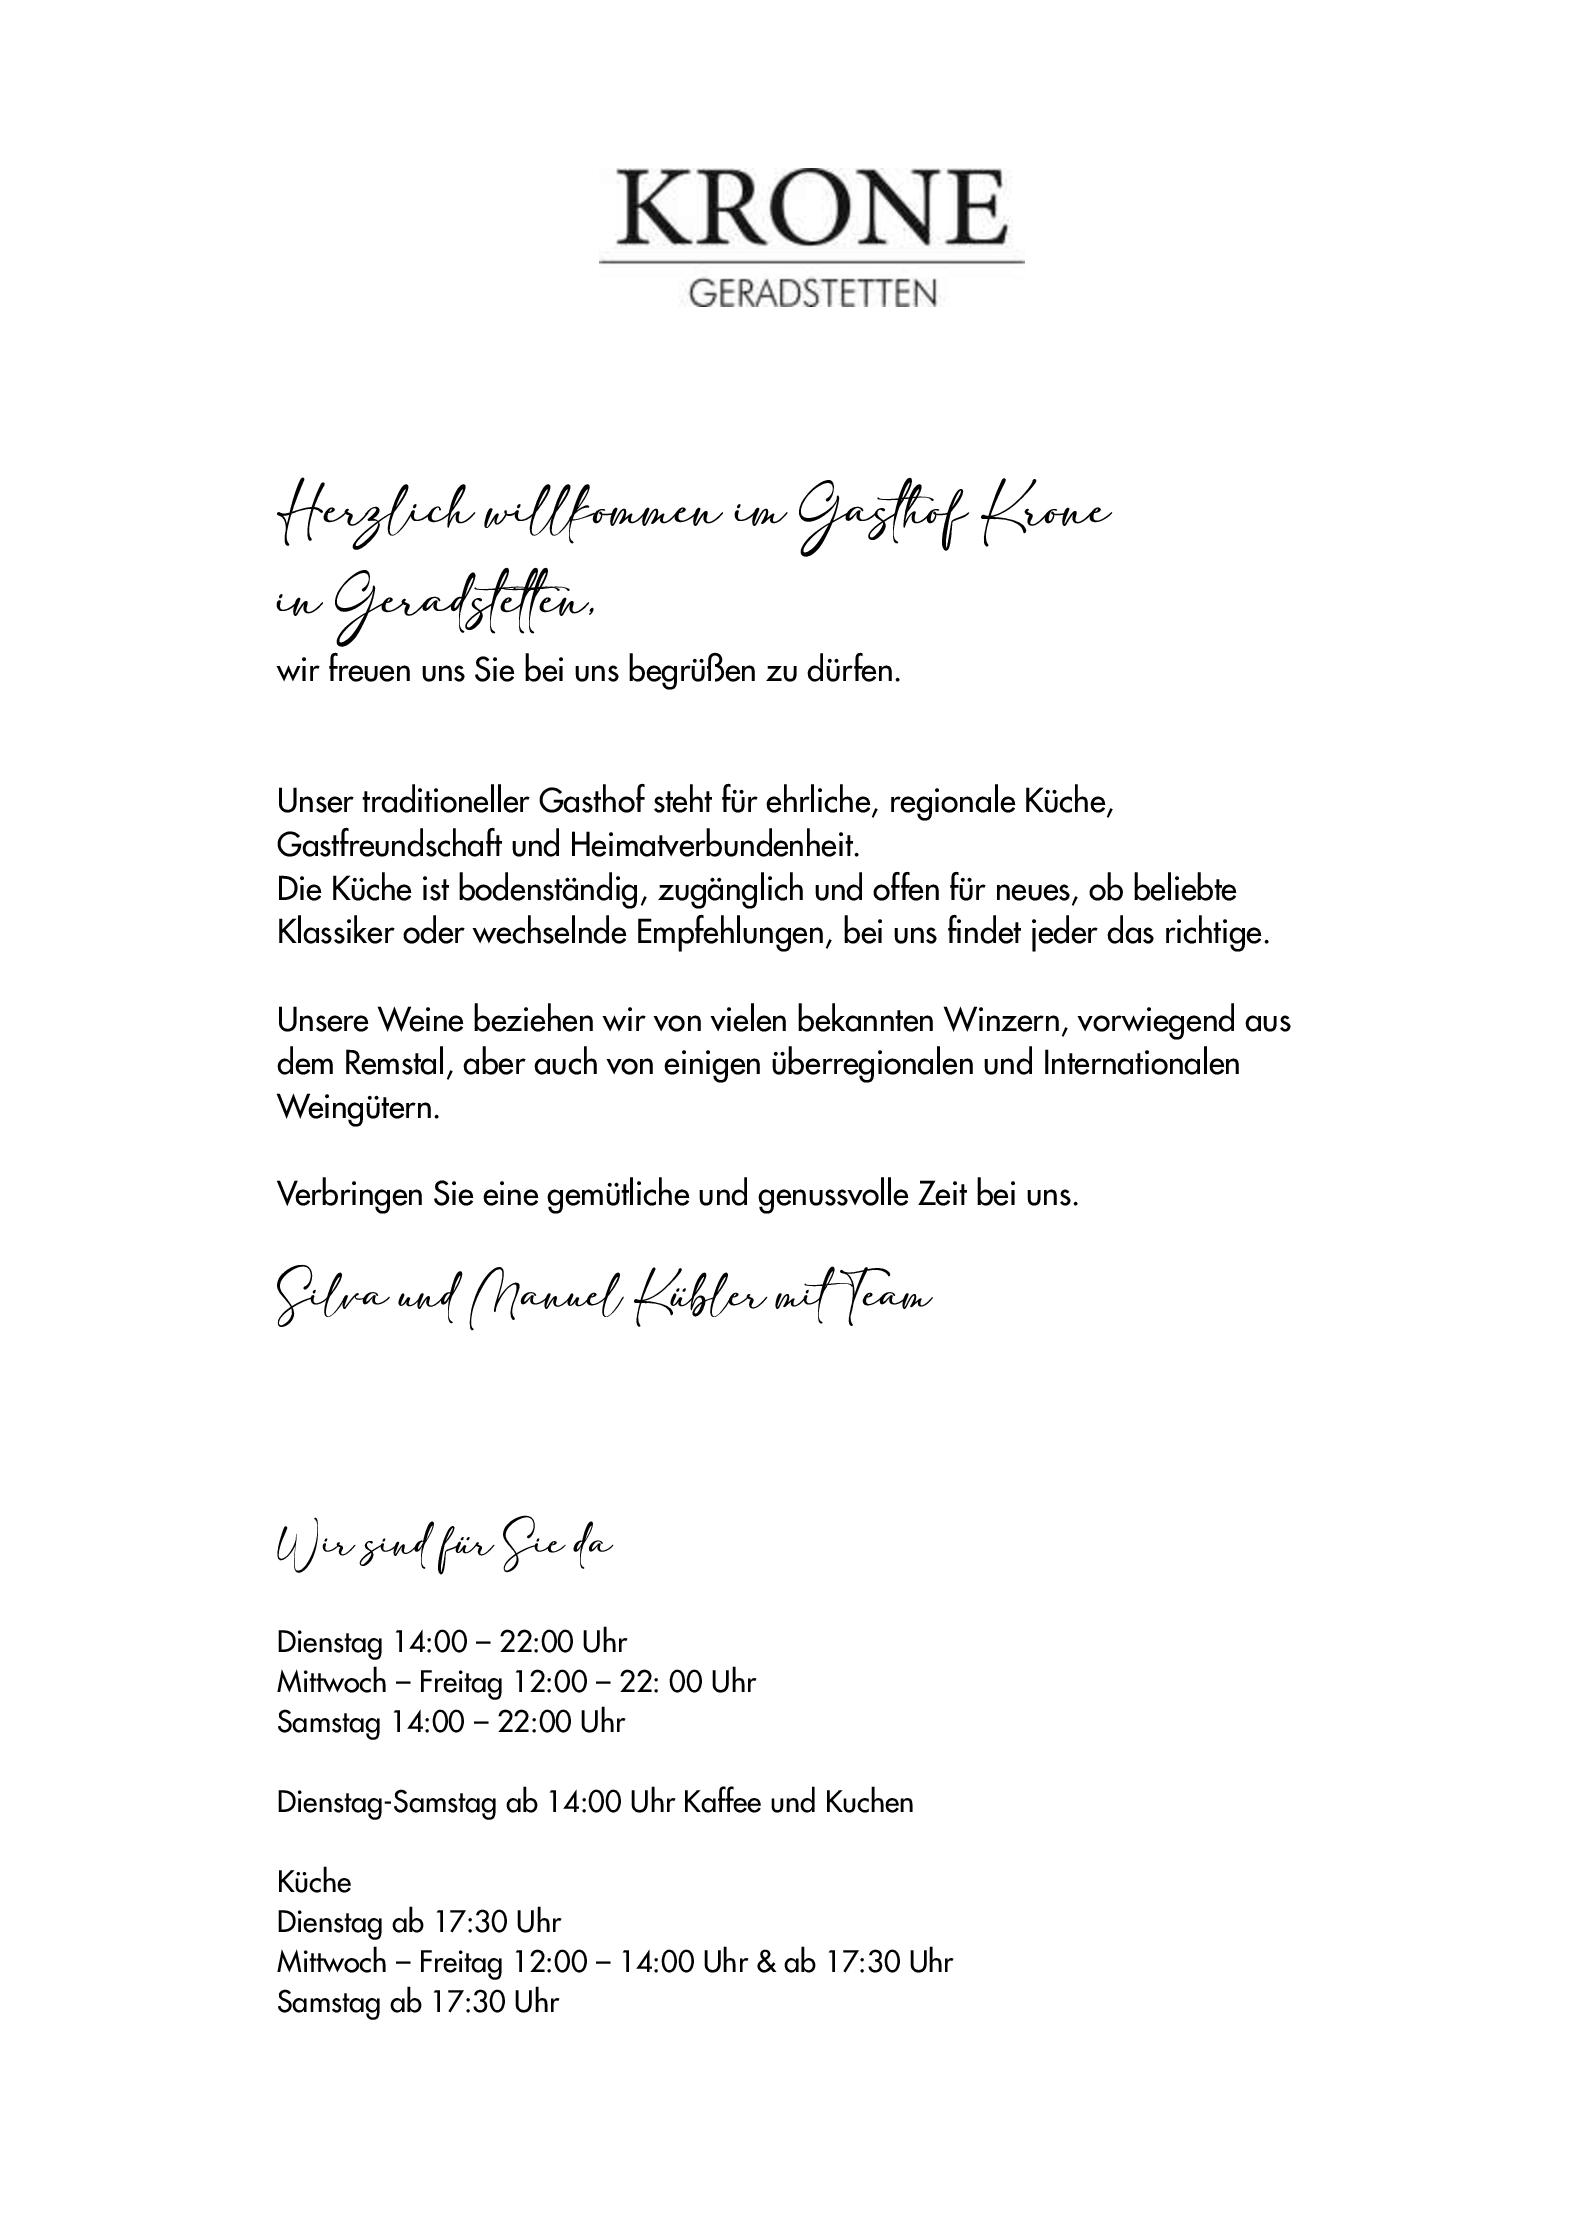 KRONE
GERADSTETTEN
Herzlich willkommen im Gasthof Krone
in Geradstetten,
wir freuen uns Sie bei uns begrüßen zu dürfen.
Unser traditioneller Gasthof steht für ehrliche, regionale Küche,
Gastfreundschaft und Heimatverbundenheit.
Die Küche ist bodenständig, zugänglich und offen für neues, ob beliebte
Klassiker oder wechselnde Empfehlungen, bei uns findet jeder das richtige.
Unsere Weine beziehen wir von vielen bekannten Winzern, vorwiegend aus
dem Remstal, aber auch von einigen überregionalen und Internationalen
Weingütern.
Verbringen Sie eine gemütliche und genussvolle Zeit bei uns.
Silva und Manuel Kübler mit Team
Wir sind für Sie da
Dienstag 14:00 – 22:00 Uhr
Mittwoch – Freitag 12:00 – 22: 00 Uhr
Samstag 14:00 – 22:00 Uhr
Dienstag-Samstag ab 14:00 Uhr Kaffee und Kuchen
Küche
Dienstag ab 17:30 Uhr
Mittwoch – Freitag 12:00 – 14:00 Uhr & ab 17:30 Uhr
Samstag ab 17:30 Uhr